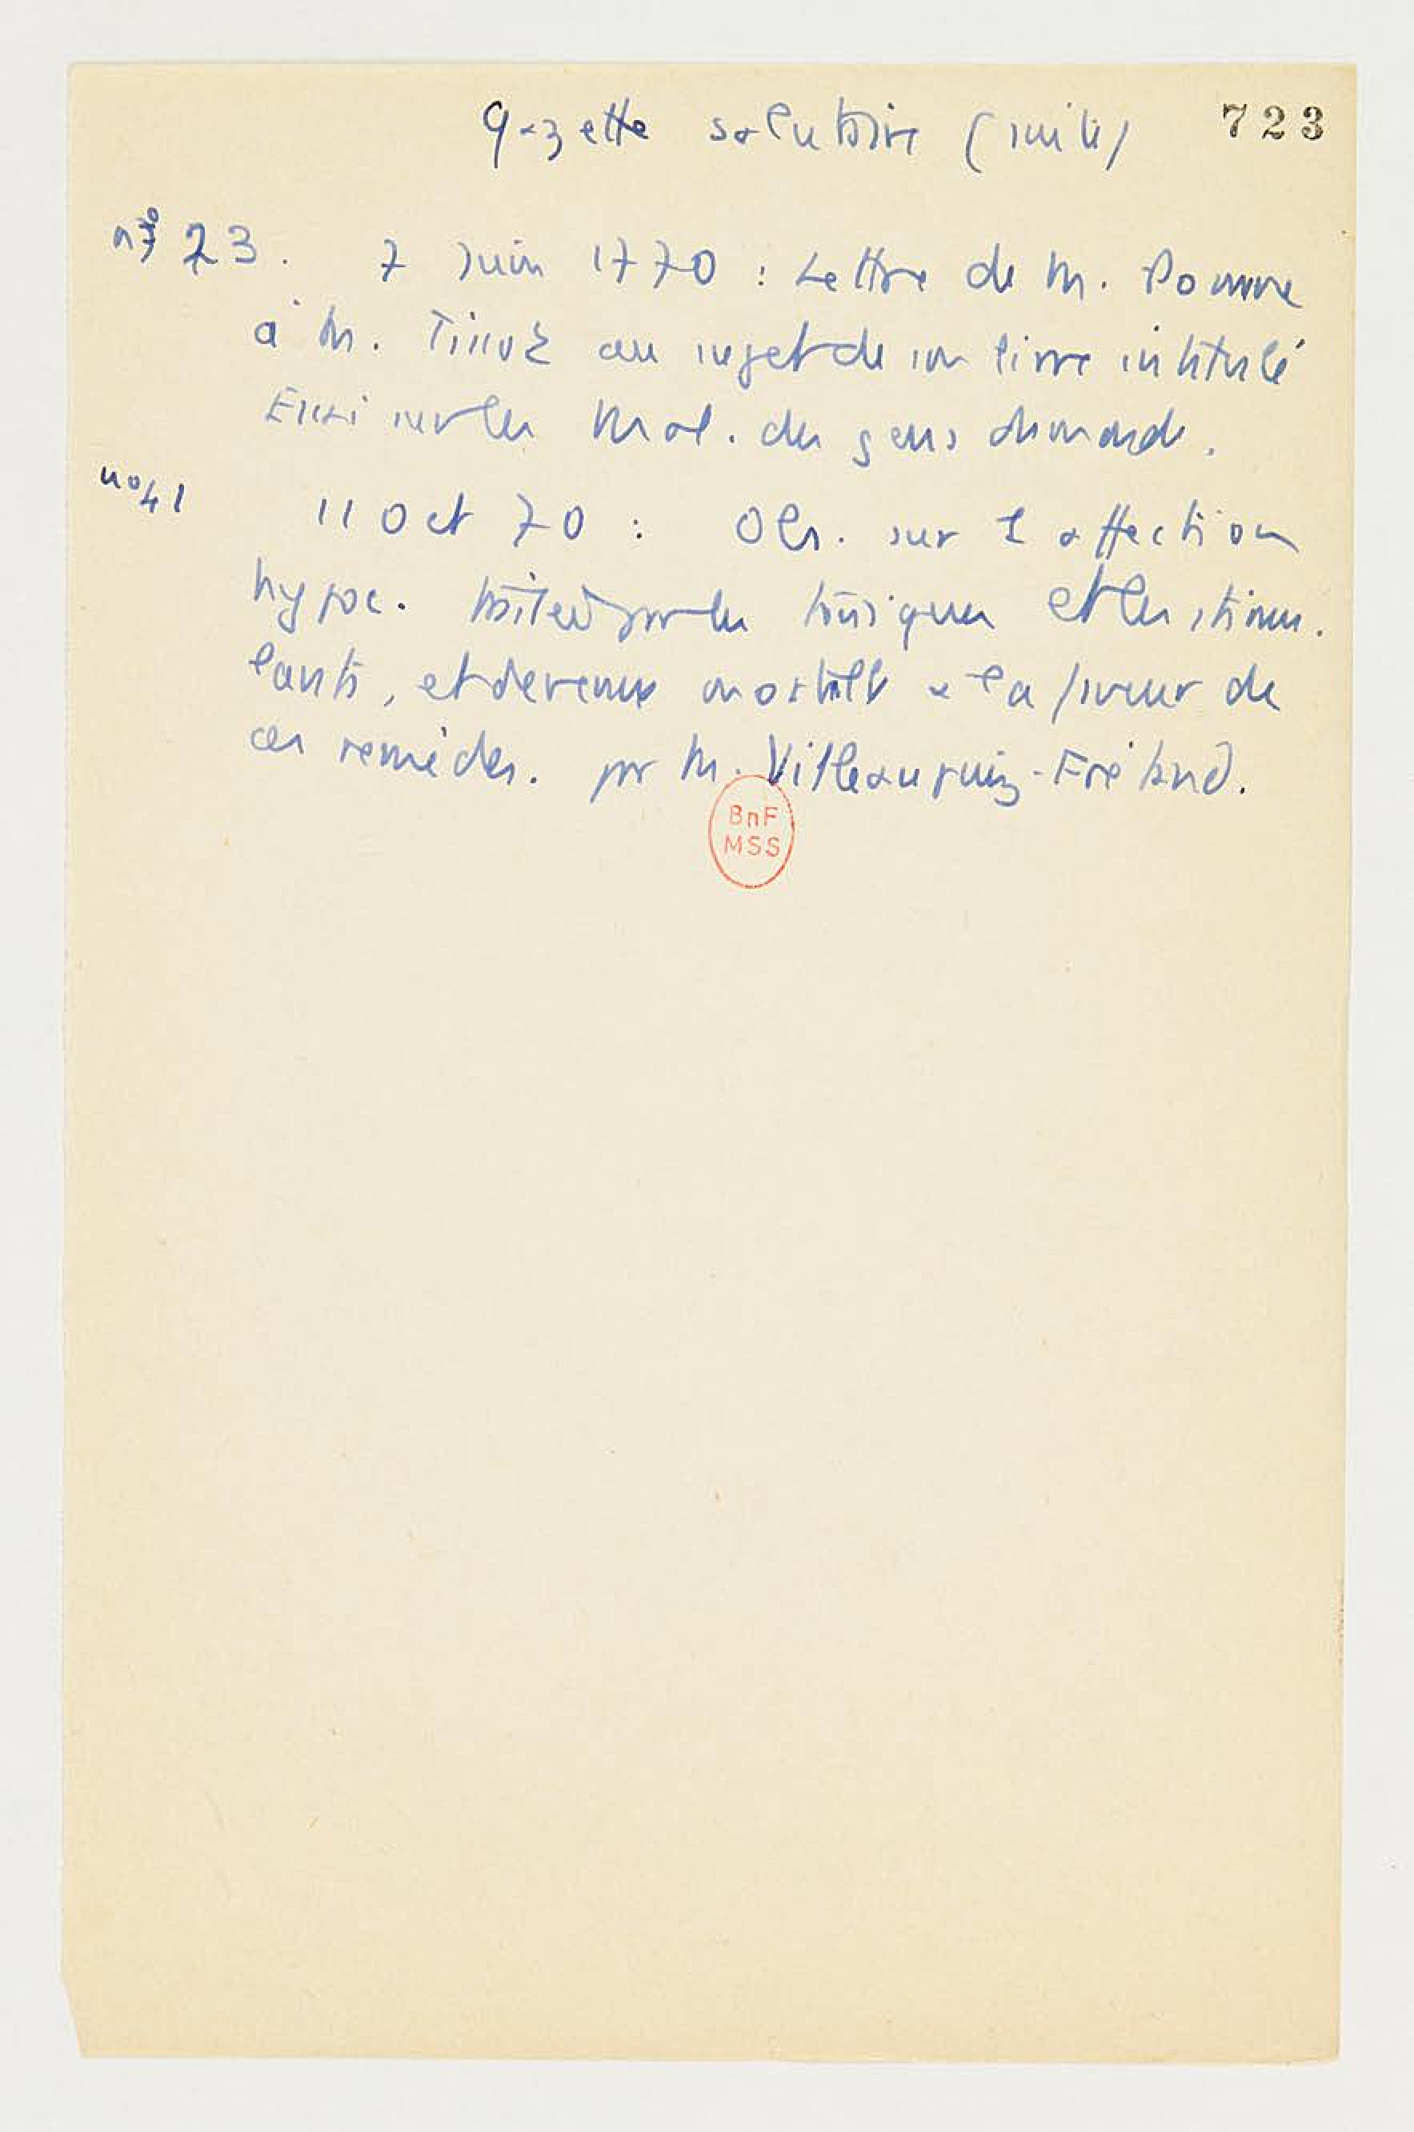 Gazette salutaire (suite) 723
nº 23. 7 Juin 1770 : Lettre de M. Pomme
à M. Tissot au sujet de son livre intitulé
Essai sur les Mal. des gens du monde.
nº 41 11 Oct 70 : Obs. sur l'affection
hypoc. traitée par les toniques et les stimu-
lants, et devenue mortelle à la faveur de
ces remèdes. par M. Villeaupuis-Frétaud.
BnF
MSS